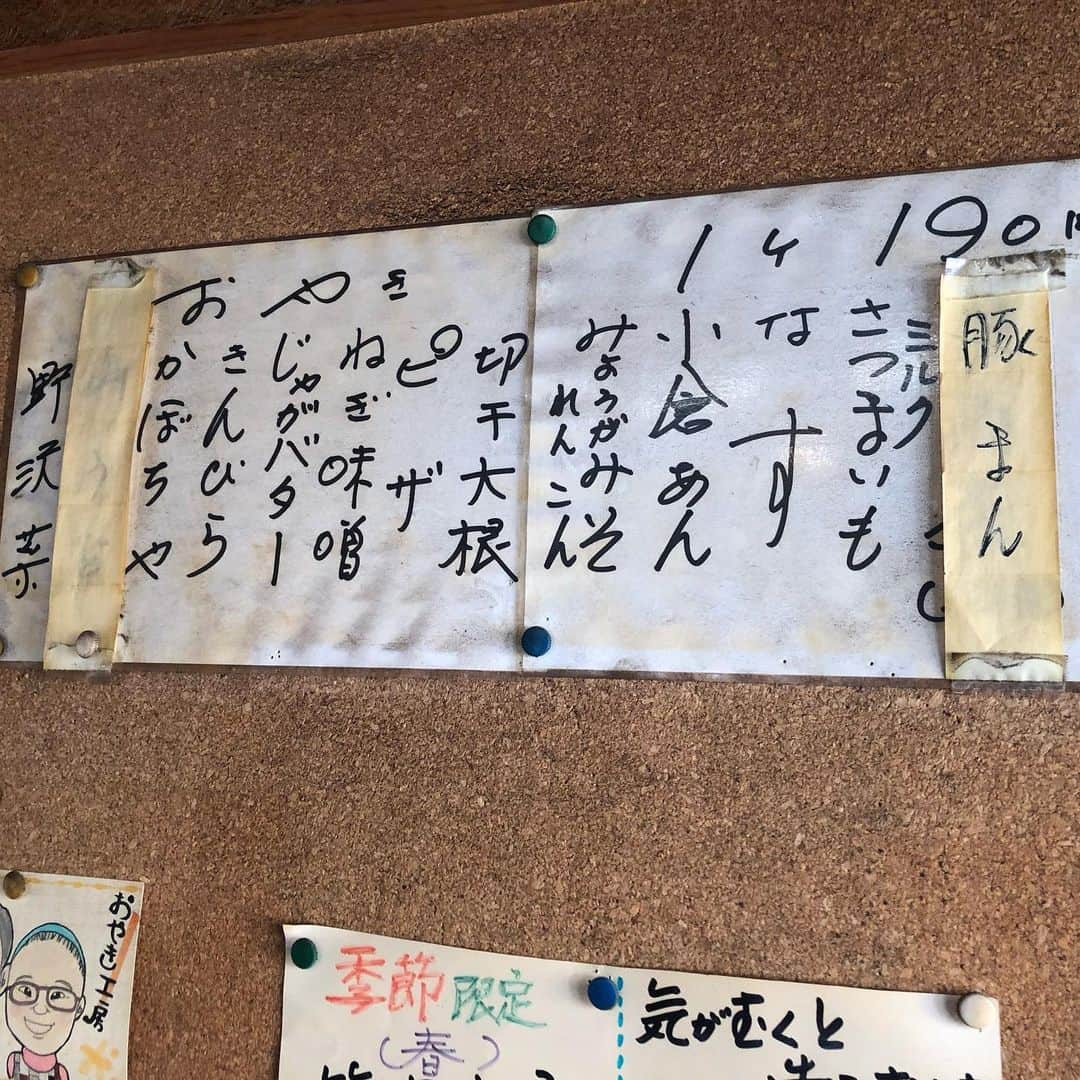 おやき 1ケ 190
豚まん
ミルク
さつまいも
なす
小倉あん
みょうがみそ
れんこん
切干大根
ピザ
ねぎ味噌
じゃがバター
きんぴら
かぼちゃ
野沢菜
おやき工房
季節限定
(春)
気がむくと